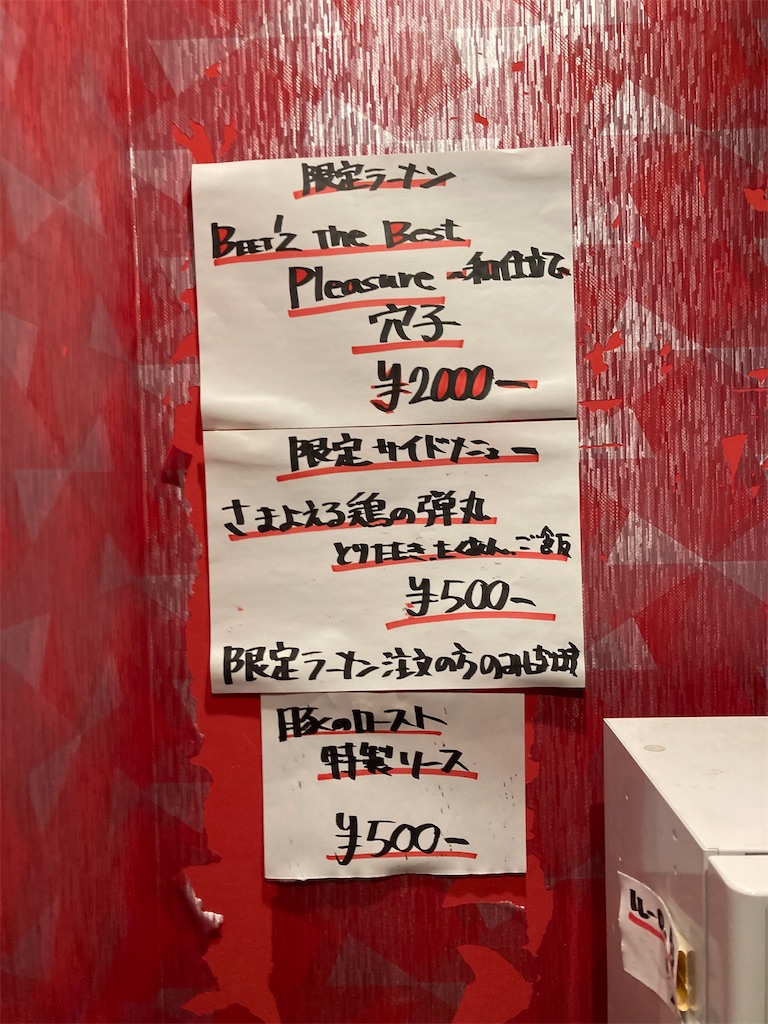 限定ラーメン
BEET'Z The Best
Pleasure ~和仕立て~
穴子
¥2000-
限定サイドメニュー
さまよえる鶏の弾丸
とりたまき、たくあん、ご飯
¥500-
限定ラーメン注文の方のみ
豚のロースト
特製ソース
¥500-